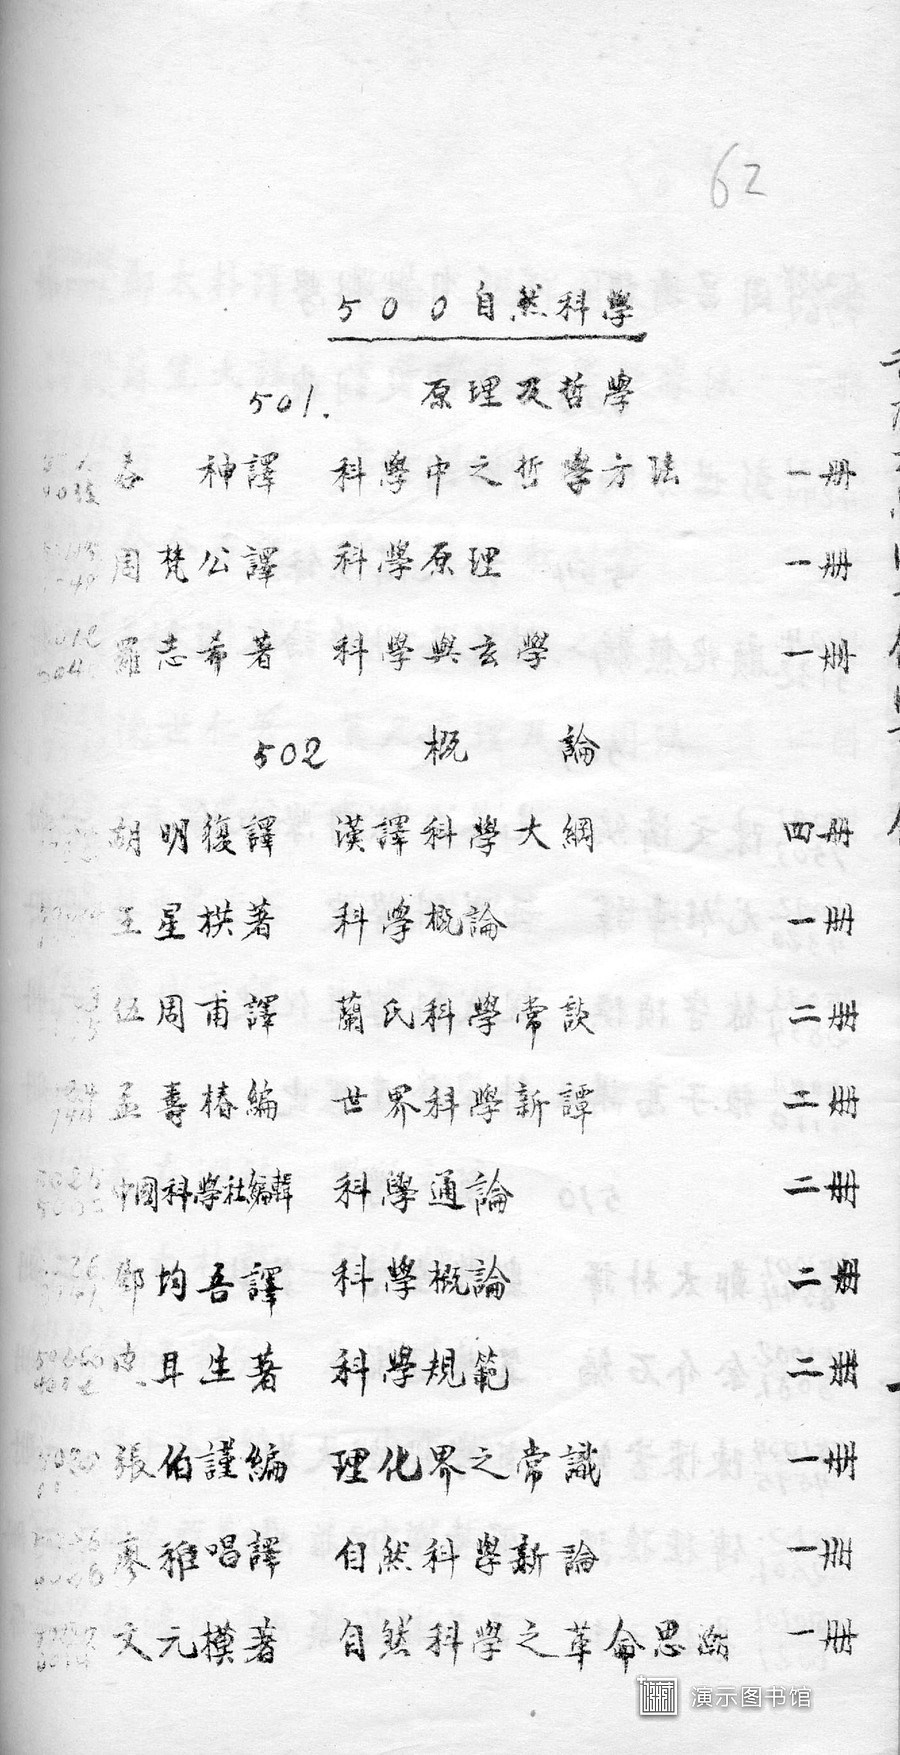 62
500自然科學
501. 原理及哲學
春神譯 科學中之哲學方法 一册
周梵公譯 科學原理 一册
羅志希著 科學與玄學 一册
502 概論
胡明復譯 漢譯科學大綱 四册
王星拱著 科學概論 一册
伍周甫譯 蘭氏科學常談 二册
孟壽椿編 世界科學新譚 二册
中國科學社編輯 科學通論 二册
鄭均吾譯 科學概論 二册
耳生著 科學規範 二册
張伯謹編 理化界之常識 一册
廖雅唱譯 自然科學新論 一册
文元模著 自然科學之革命思潮 一册
演示图书馆